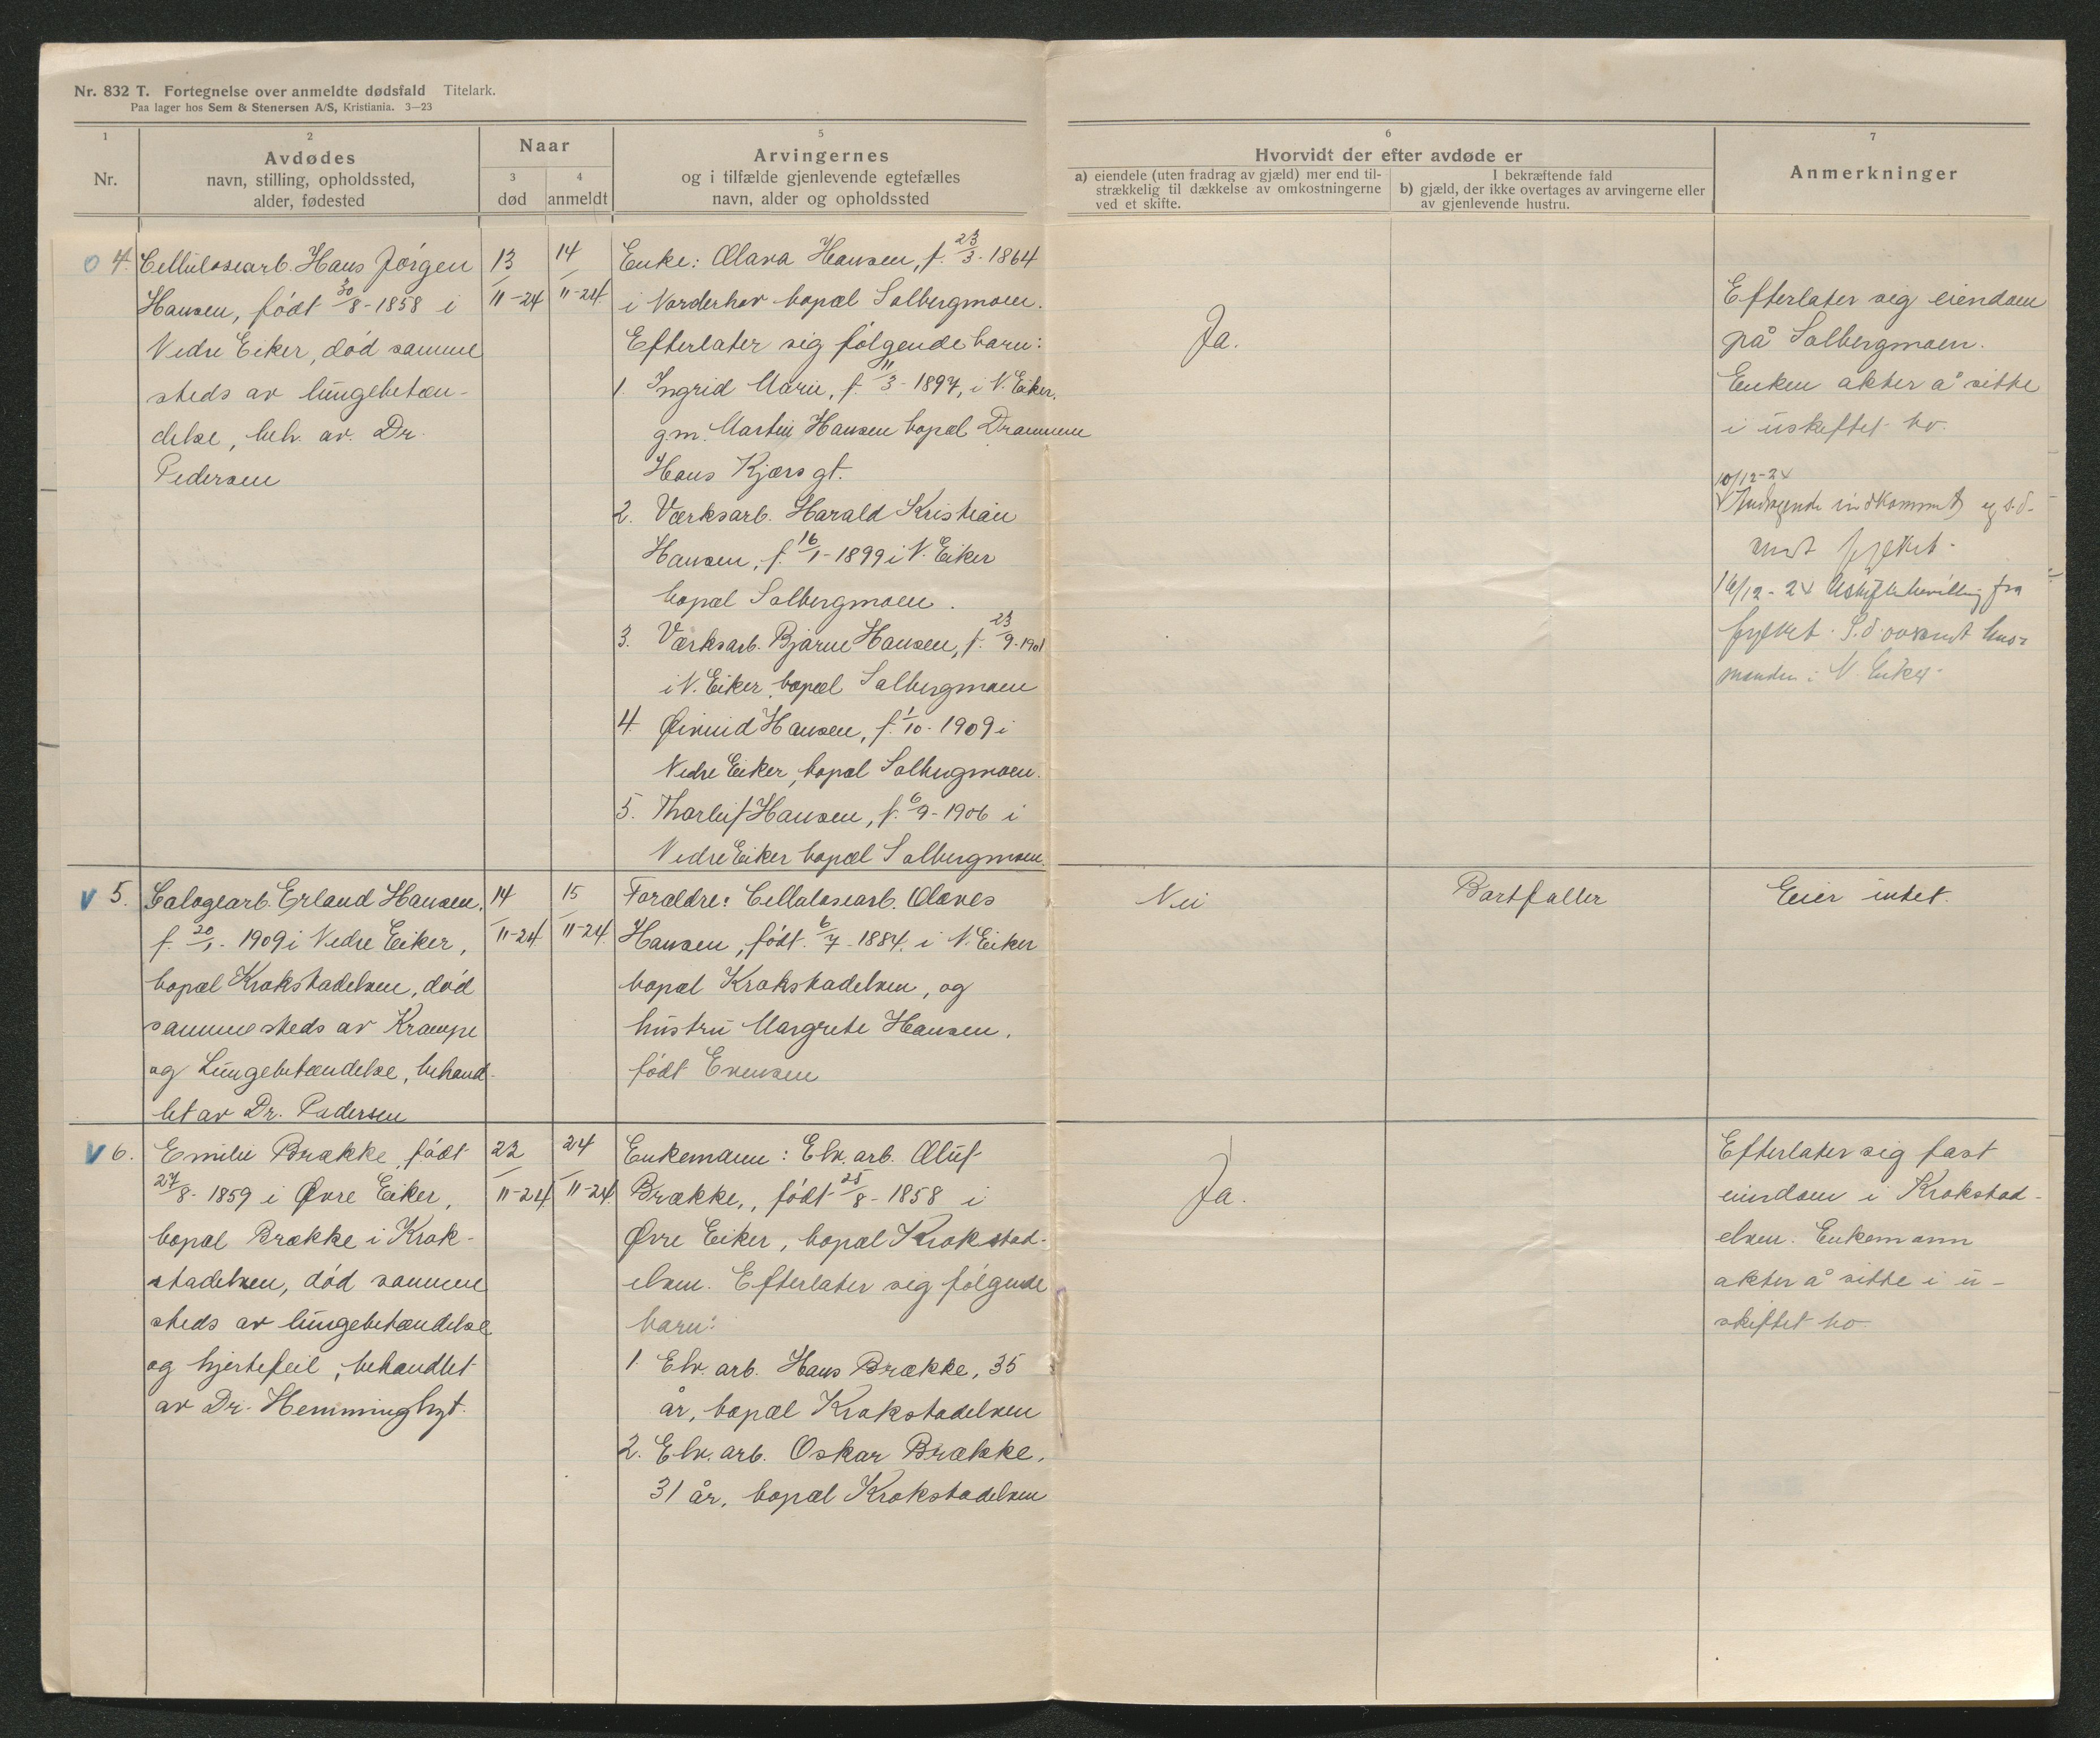 Nr. 832 T. Fortegnelse over anmeldte dødsfald Titelark.
Paa lager hos Sem & Stenersen A/S, Kristiania. 3—23
1
Nr.
2
Avdødes
navn, stilling, opholdssted,
alder, fødested
Naar
3
død
4
anmeldt
5
Arvingernes
og i tilfælde gjenlevende egtefælles
navn, alder og opholdssted
6
Hvorvidt der efter avdøde er
a) eiendele (uten fradrag av gjæld) mer end til-
strækkelig til dækkelse av omkostningerne
ved et skifte.
I bekræftende fald
b) gjæld, der ikke overtages av arvingerne eller
av gjenlevende hustru.
7
Anmerkninger
o 4. Cellulosearb. Hans Jørgen
Hansen, født 30/8-1858 i
Nedre Eiker, død samme
steds av lungebetæn-
delse, beh. av. Dr.
Pedersen
13/11-24
14/11-24.
Enke: Olava Hansen, f. 23/3-1864
i Norderhov bopæl Solbergmoen.
Efterlater sig følgende barn:
1. Ingrid Marie, f. 11/3-1897, i N. Eiker,
gm. Martin Hansen bopæl Drammen
Hans Kjærs gt.
2. Værksarb. Harald Kristian
Hansen, f. 16/1-1899 i N. Eiker
bopæl Solbergmoen.
3. Værksarb. Bjarne Hansen, f. 23/9-1901
i N. Eiker, bopæl Solbergmoen
4. Øivind Hansen, f. 1/10-1909 i
Nedre Eiker, bopæl Solbergmoen.
5. Thorleif Hansen, f. 6/9-1906 i
Nedre Eiker bopæl Solbergmoen.
Ja.
Efterlater sig eiendom
på Solbergmoen.
Enken akter å sitte
i uskiftet bo.
10/12-24
Andragende indkommet og s.d.
sendt fylket.
16/12-24 Uskiftebevilling fra
fylket. S.d. oversendt lens-
manden i N. Eiker.
v 5. Calogearb. Erland Hansen,
f. 20/1-1909 i Nedre Eiker,
bopæl Krokstadelven, død
sammesteds av Krampe
og Lungebetændelse, behand-
let av Dr. Pedersen
14/11-24
15/11-24.
Forældre: Cellulosearb. Olaves
Hansen, født 6/7-1884. i N. Eiker
bopæl Krokstadelven, og
hustru Margrete Hansen,
født Evensen
Nei
Bortfaller
Eier intet.
v 6. Emilie Brække, født
27/8-1859 i Øvre Eiker,
bopæl Brække i Krok-
stadelven, død samme
steds av lungebetændelse
og hjertefeil, behandlet
av Dr. Hemminghyt.
22/11-24.
24/11-24.
Enkemann: Elv. arb. Oluf
Brække,, født 25/8-1858 i
Øvre Eiker, bopæl Krokstad-
elven. Efterlater sig følgende
barn:
1. Elv. arb. Hans Brække, 35
år, bopæl Krokstadelven
2. Elv. arb. Oskar Brække,
31 år, bopæl Krokstadelven
Ja.
Efterlater sig fast
eiendom i Krokstad-
elven. Enkemann
akter å sitte i u-
skiftet bo.